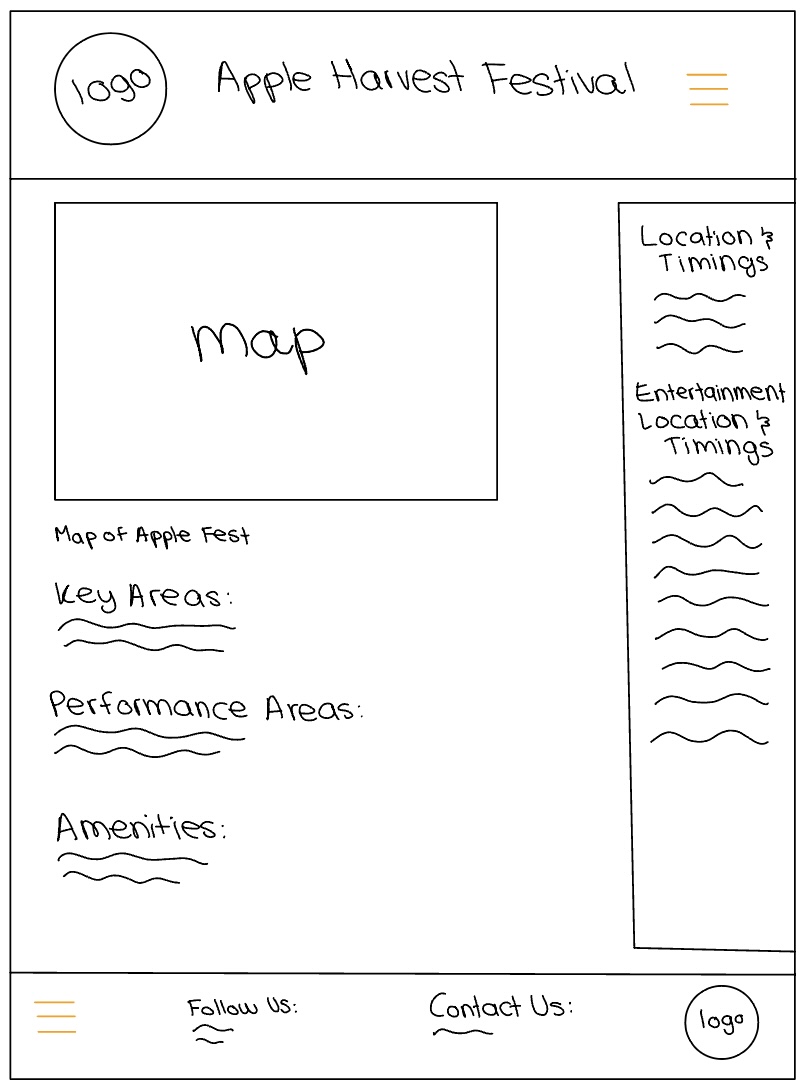 logo
Apple Harvest Festival
Map
Map of Apple Fest
Key Areas:
Performance Areas:
Amenities:
Location &
Timings
Entertainment
Location &
Timings
Follow Us:
Contact Us:
logo